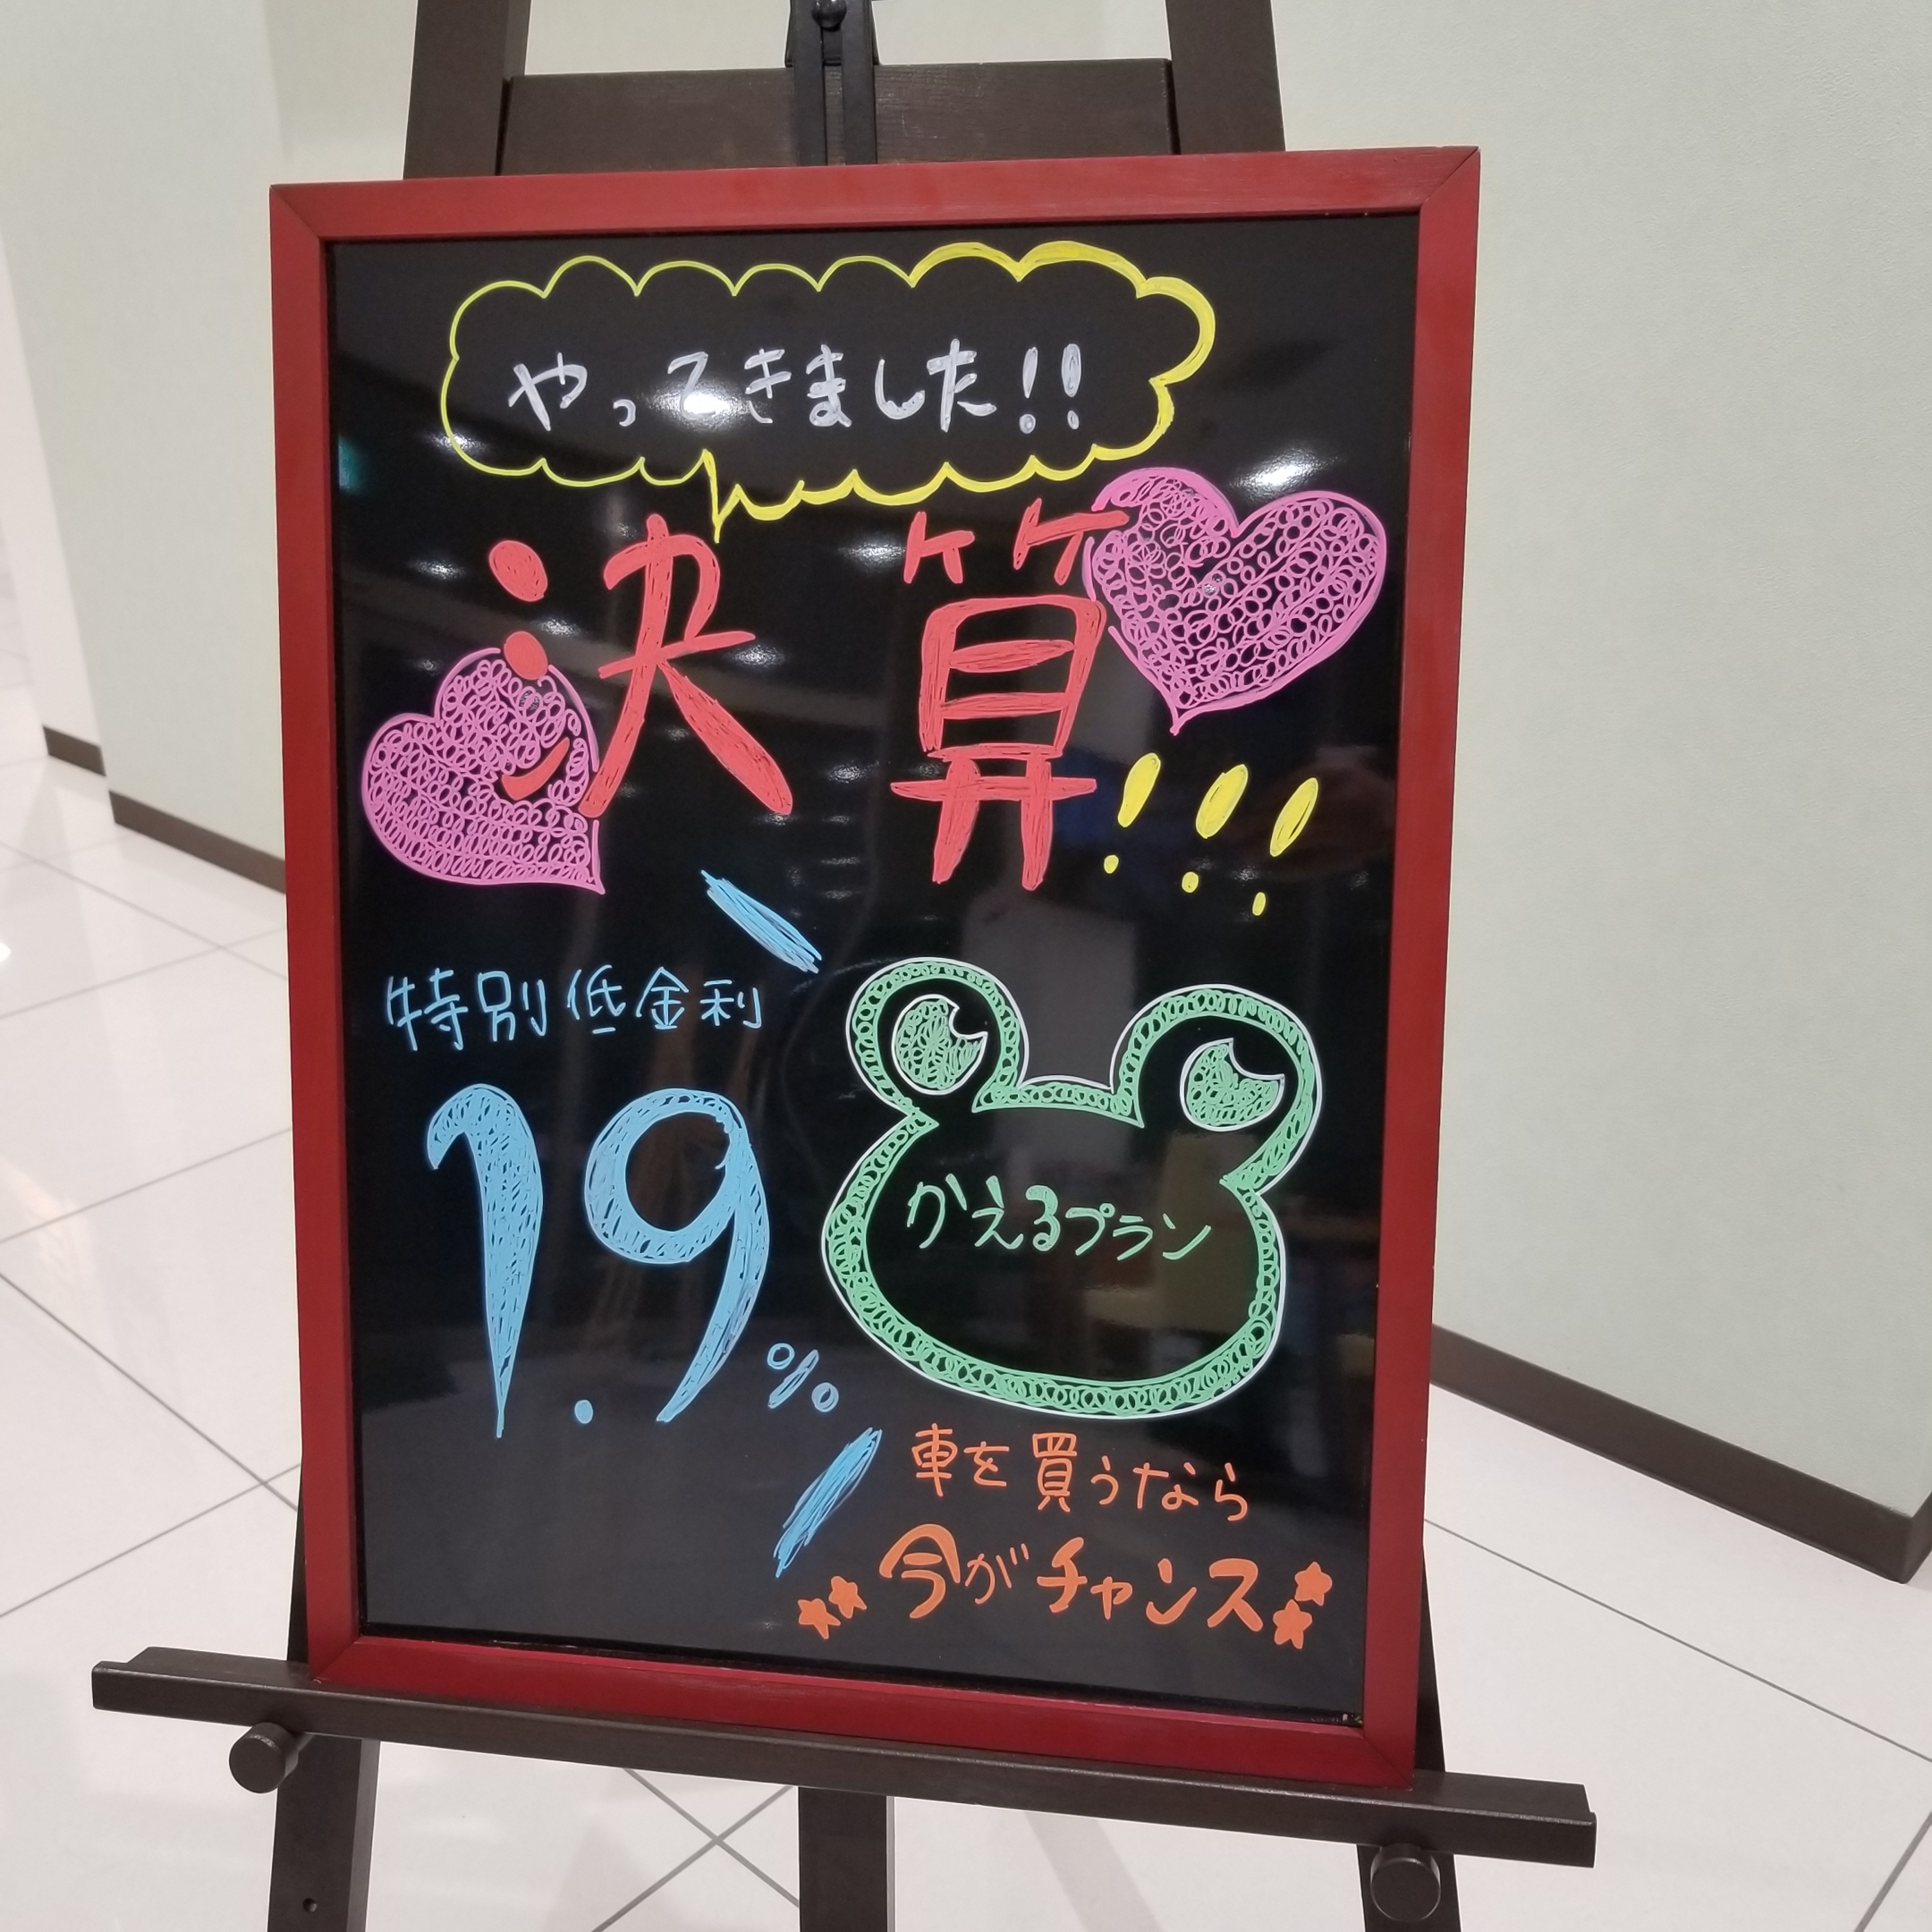 やってきました!!
決算!!!
特別低金利
1.9%
かえるプラン
車を買うなら
今がチャンス